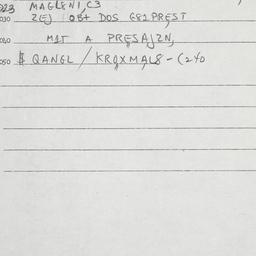 023 MAGLENI, C3
030 2(E) OB+ DOS G81 PREST
040 MIT A PRESAJZN,
050 $ QANGL / KRQXMAL8 - (240